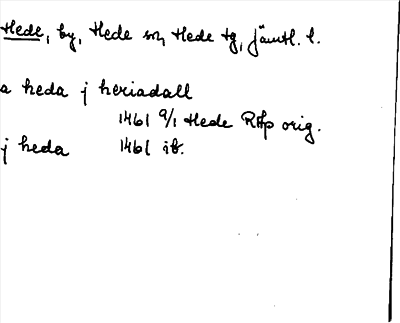 Hede, by, Hede sn, Hede tg, Jämtl. l.
a heda j heriadall
1461 9/1 Hede RAp orig.
j heda 1461 ib.